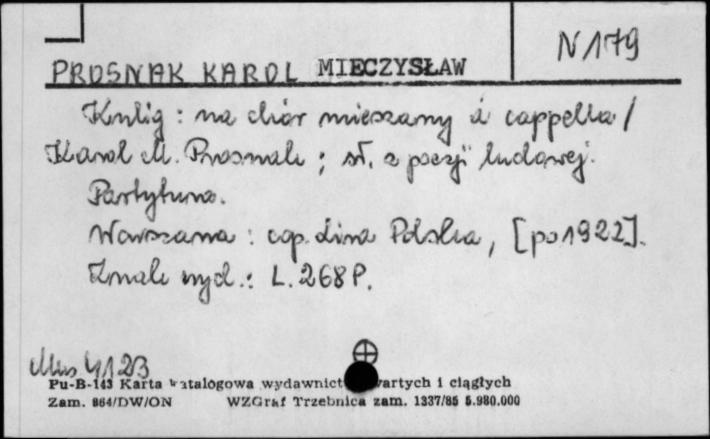 N 179
PROSNAK KAROL MIECZYSŁAW
Kulig : na chór mieszany a cappella /
Karol M. Prosnak ; sł. z poezji ludowej.
Partytura.
Warszawa : cop. Lira Polska, [po 1922].
Znak wyd.: L.268P.
Mus 4123
Pu-B-143 Karta katalogowa wydawnict wartych i ciągłych
Zam. 864/DW/ON WZGraf Trzebnica zam. 1337/85 5.980.000